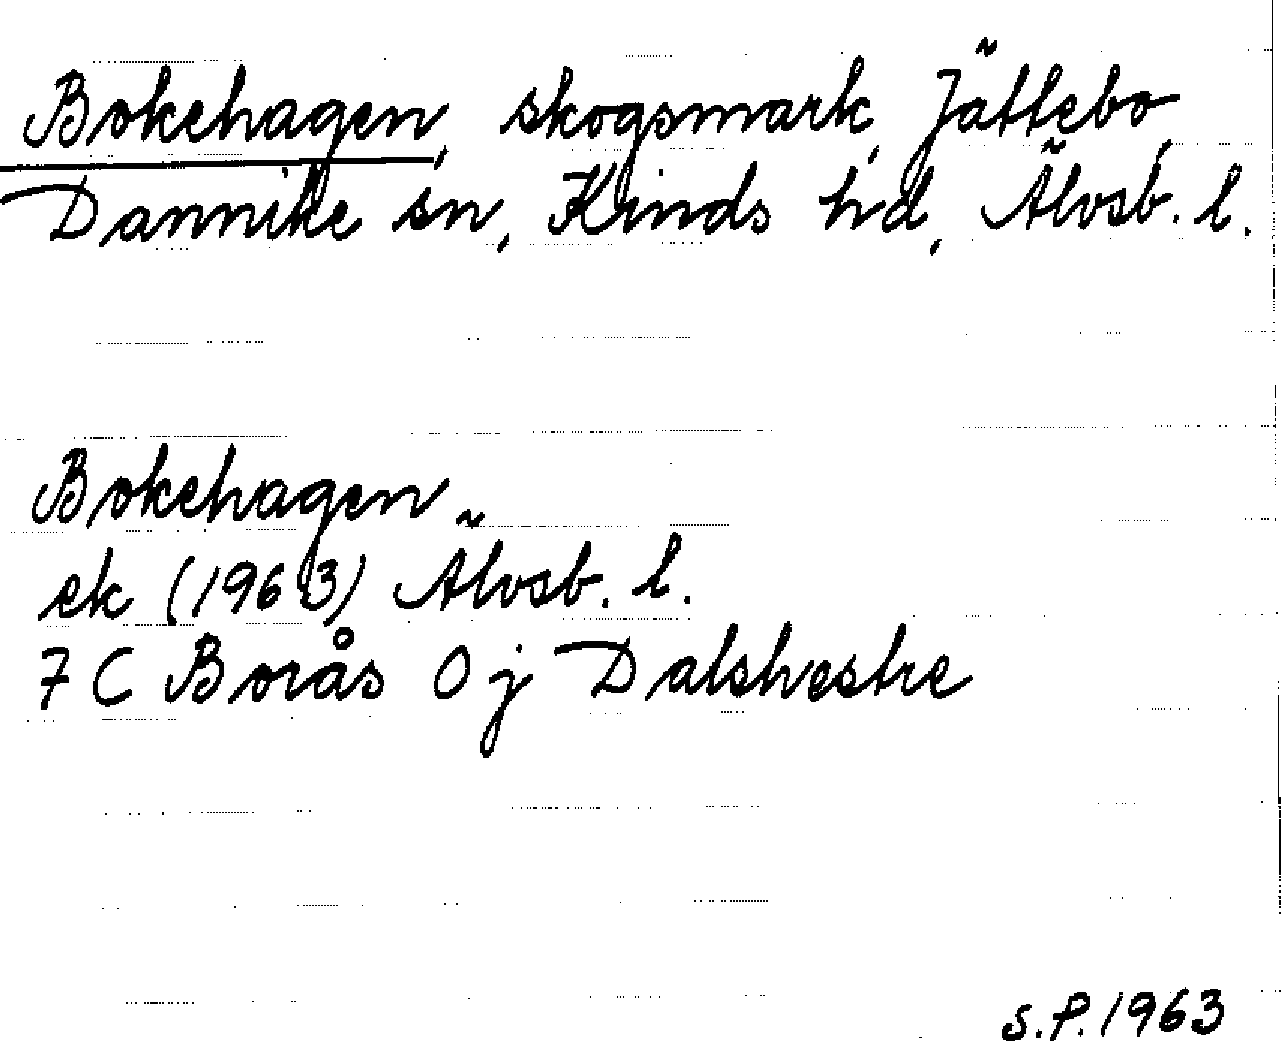 Bokehagen, skogsmark, Jättebo,
Dannike sn, Kinds hd, Älvsb. l.
Bokehagen
ek (1963) Älvsb. l.
7 C Borås 0 j Dalshestre
S.P. 1963